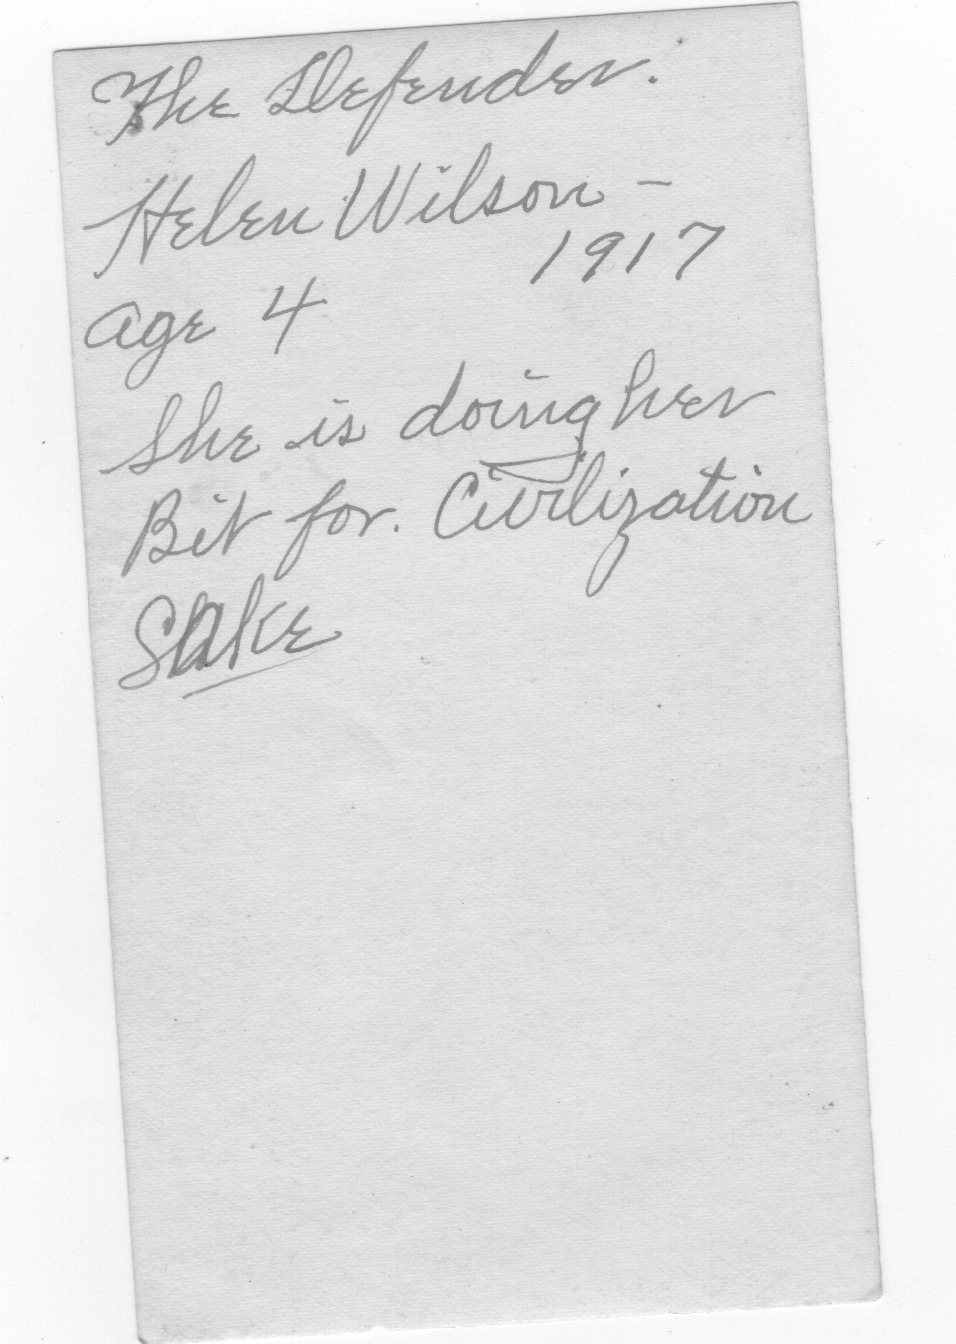 The Defender.
Helen Wilson –
1917
age 4
She is doing her
Bit for. Civilization
Sake